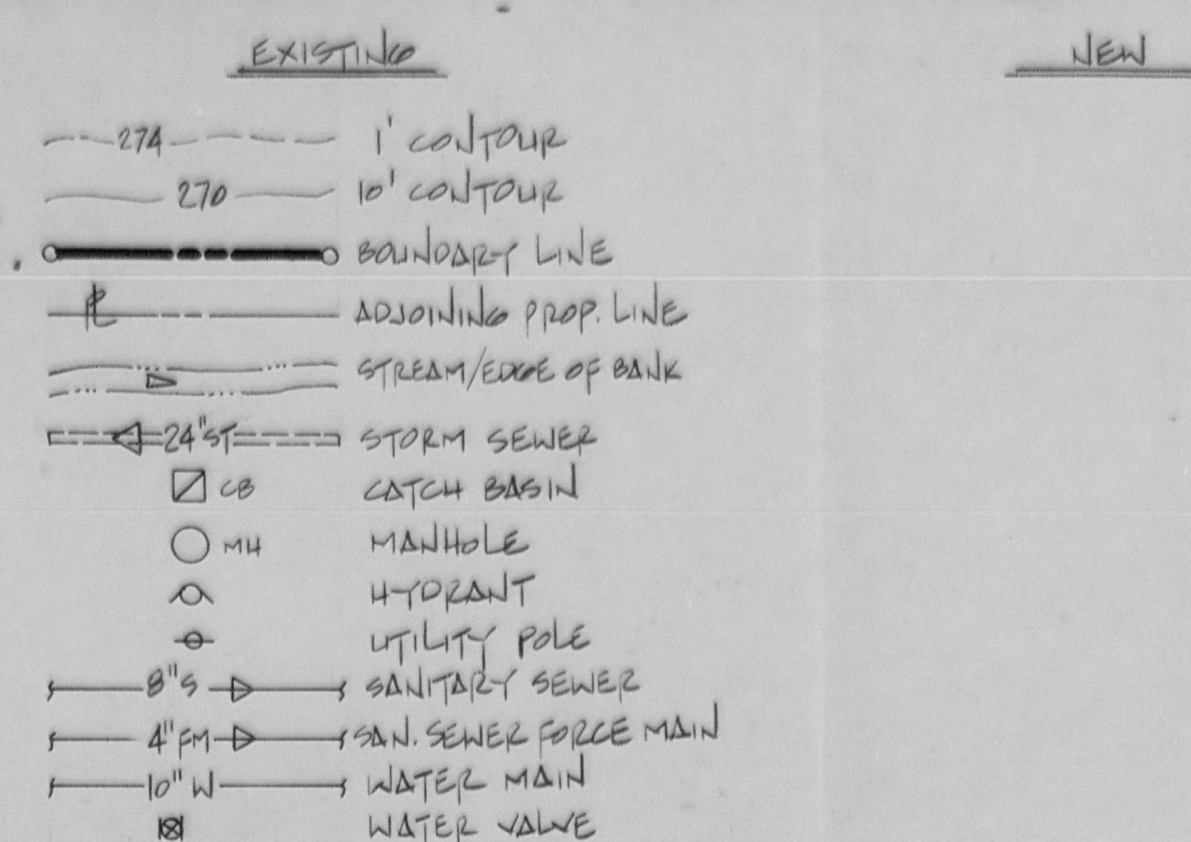 EXISTING NEW
274 1' CONTOUR
270 10' CONTOUR
BOUNDARY LINE
PL ADJOINING PROP. LINE
STREAM/EDGE OF BANK
24"ST STORM SEWER
CB CATCH BASIN
MH MANHOLE
HYDRANT
UTILITY POLE
8"S SANITARY SEWER
4"FM SAN. SEWER FORCE MAIN
10"W WATER MAIN
WATER VALVE